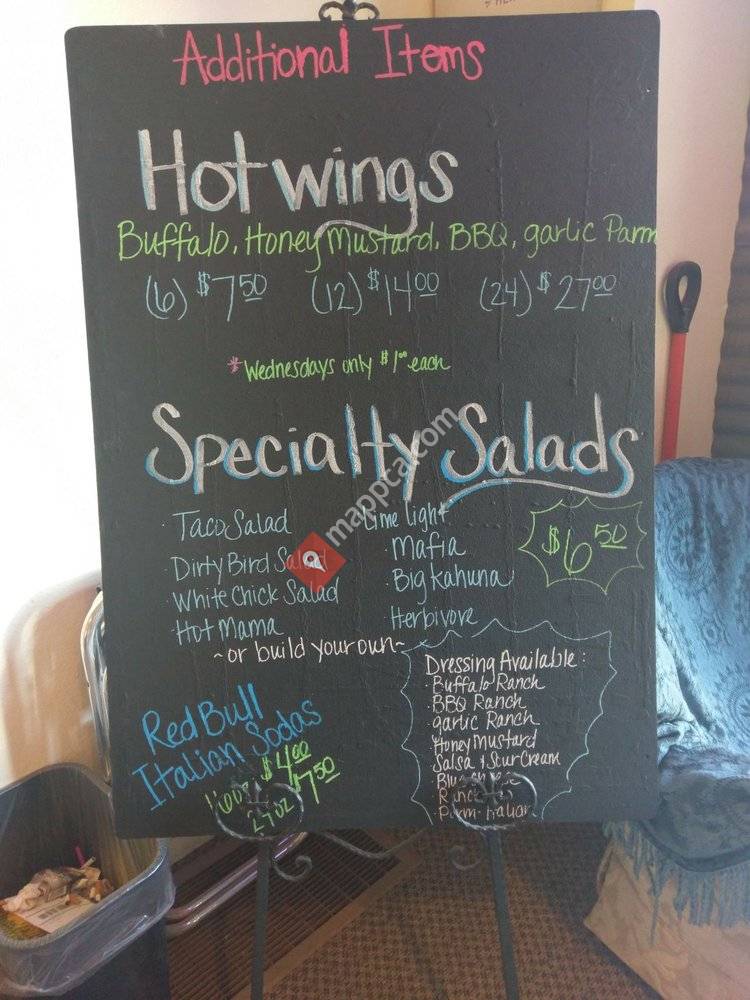 Additional Items
Hot wings
Buffalo, Honey Mustard, BBQ, garlic Parm
(6) $7.50 (12) $14.00 (24) $27.00
*Wednesdays only $1.00 each
Specialty Salads
· Taco Salad
· Dirty Bird Salad
· White Chick Salad
· Hot Mama
· Lime light
· Mafia
· Big Kahuna
· Herbivore
$6.50
~or build your own~
Dressing Available:
· Buffalo Ranch
· BBQ Ranch
· garlic Ranch
· Honey Mustard
· Salsa & Sour Cream
Parm-Italian
Red Bull
Italian Sodas
16oz $4.00
24oz $7.50
mappcal.com